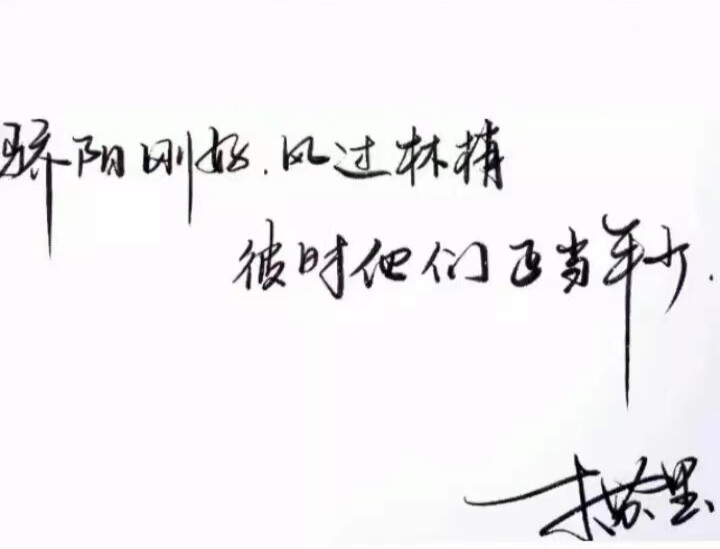 骄阳刚好.风过林梢
彼时他们正当年少.
木苏里